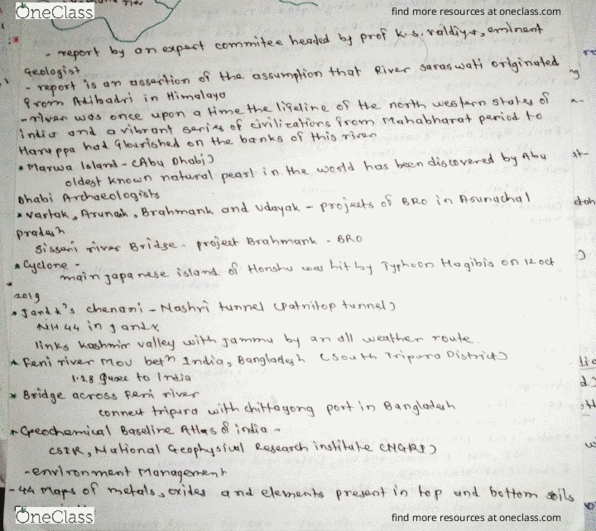 OneClass
find more resources at oneclass.com
River
- report by an expert commitee headed by prof K.S. Valdiya, eminent
Geologist
- report is an assertion of the assumption that River Saraswati originated
from Adibadri in Himalaya
- river was once upon a time the lifeline of the north western states of
India and a vibrant series of civilizations from Mahabharat period to
Harappa had flourished on the banks of this river
* Marwa Island - (Abu Dhabi)
oldest known natural pearl in the world has been discovered by Abu
Dhabi Archaeologists
* Vartak, Arunank, Brahmank and Udayak - projects of BRO in Arunachal
Pradesh
Sissari river Bridge - project Brahmank - BRO
* Cyclone -
main japanese island of Honshu was hit by Typhoon Hagibis on 12 oct
2019
* J and K's chenani - Nashri tunnel (Patnitop tunnel)
NH 44 in J and K
links Kashmir valley with Jammu by an all weather route.
* Feni river Mou betn India, Bangladesh (South Tripura District)
1.28 Qusec to India
* Bridge across Feni river
connect tripura with chittagong port in Bangladesh
* Geochemical Baseline Atlas of india -
CSIR, National Geophysical Research institute (NGRI)
- environment Management
- 44 maps of metals, oxides and elements present in top and bottom soils
OneClass
find more resources at oneclass.com